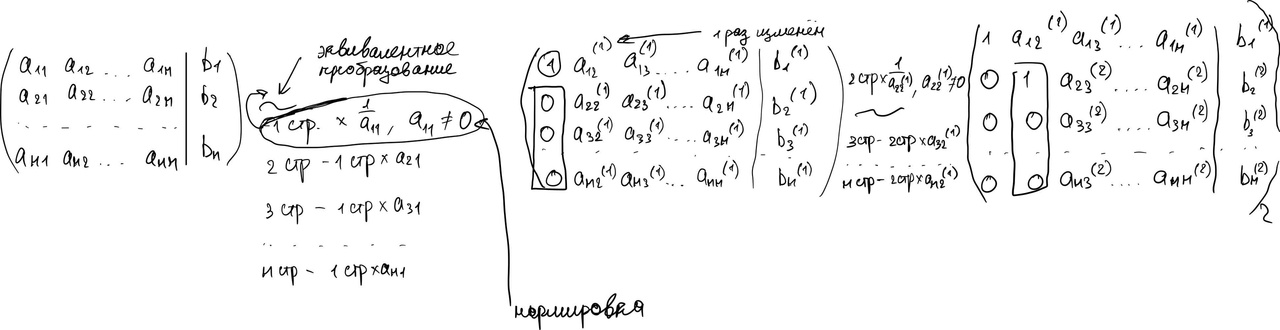 a11 a12 ... a1н | b1
a21 a22 ... a2н | b2
aн1 aн2 ... aнн | bн
эквивалентное
преобразование
1 стр. × 1/a11, a11 ≠ 0
2 стр - 1 стр × a21
3 стр - 1 стр × a31
н стр - 1 стр × aн1
нормировка
1 раз изменён
1 a12^(1) a13^(1) ... a1н^(1) | b1^(1)
0 a22^(1) a23^(1) .... a2н^(1) | b2^(1)
0 a32^(1) a33^(1) ... a3н^(1) | b3^(1)
0 aн2^(1) aн3^(1) ... aнн^(1) | bн^(1)
2 стр × 1/a22^(1), a22^(1) ≠ 0
~
3 стр - 2 стр × a32^(1)
н стр - 2 стр × aн2^(1)
1 a12^(1) a13^(1) ... a1н^(1) | b1^(1)
0 1 a23^(2) ... a2н^(2) | b2^(2)
0 0 a33^(2) ... a3н^(2) | b3^(2)
0 0 aн3^(2) .... aнн^(2) | bн^(2)